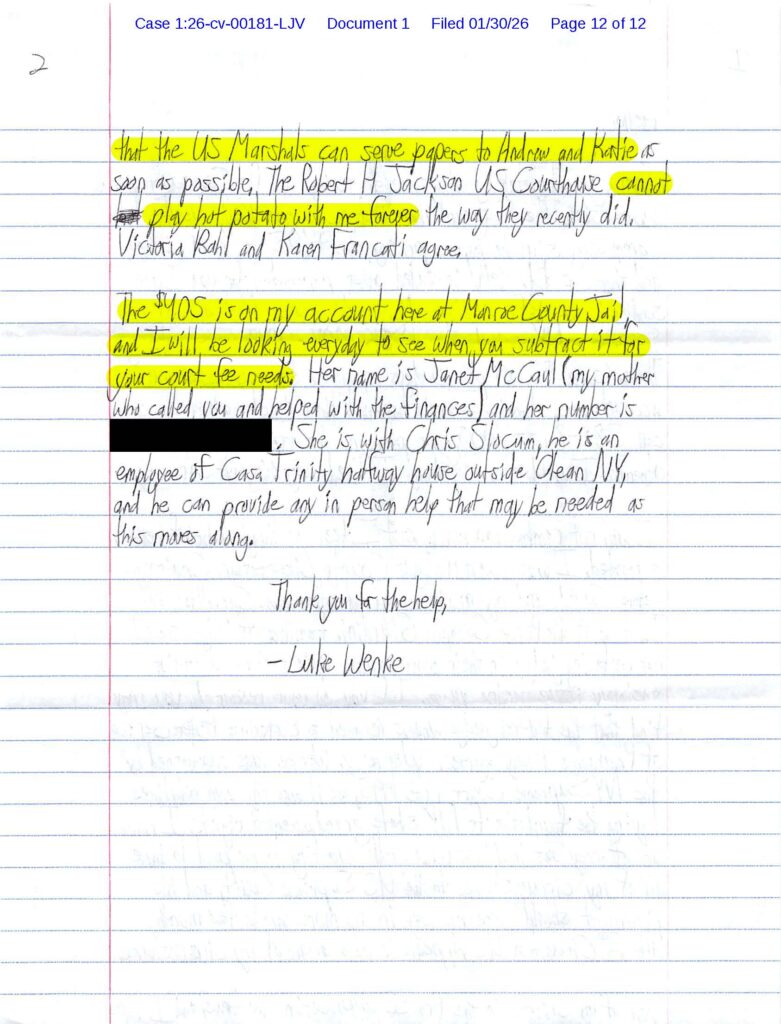 Case 1:26-cv-00181-LJV Document 1 Filed 01/30/26 Page 12 of 12
2
that the US Marshals can serve papers to Andrew and Katie as
soon as possible. The Robert H Jackson US Courthouse cannot
play hot potato with me forever the way they recently did.
Victoria Bahl and Karen Francati agree.
The $405 is on my account here at Monroe County Jail,
and I will be looking everyday to see when you subtract it for
your court fee needs. Her name is Janet McCaul (my mother
who called you and helped with the finances) and her number is
. She is with Chris Slocum, he is an
employee of Casa Trinity halfway house outside Olean NY,
and he can provide any in person help that may be needed as
this moves along.
Thank you for the help,
- Luke Wenke